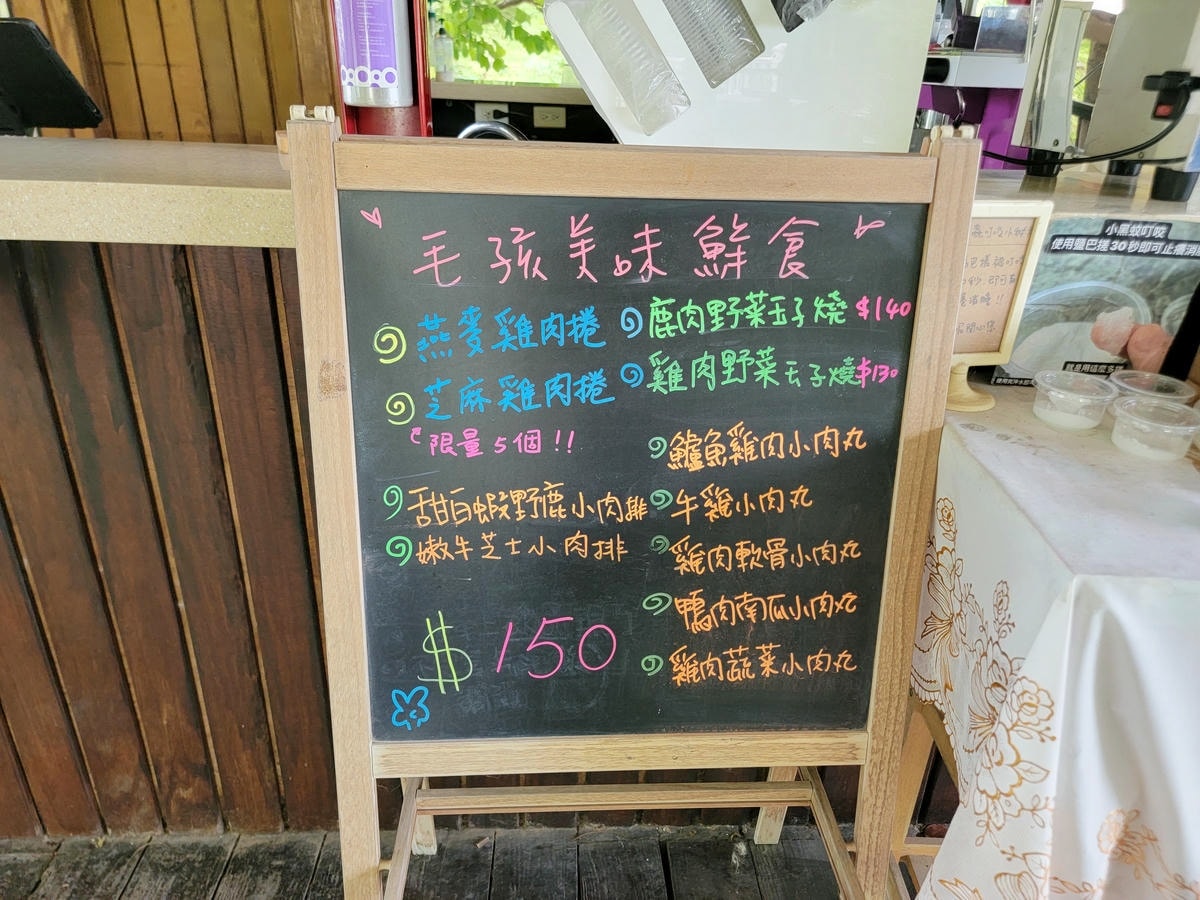 毛孩美味鮮食
燕麥雞肉捲
芝麻雞肉捲
限量5個!!
甜白蝦野鹿小肉排
嫩牛芝士小肉排
$150
鹿肉野菜玉子燒 $140
雞肉野菜玉子燒 $130
鱸魚雞肉小肉丸
牛雞小肉丸
雞肉軟骨小肉丸
鴨肉南瓜小肉丸
雞肉蔬菜小肉丸
小黑蚊叮咬
使用鹽巴搓30秒即可止癢消